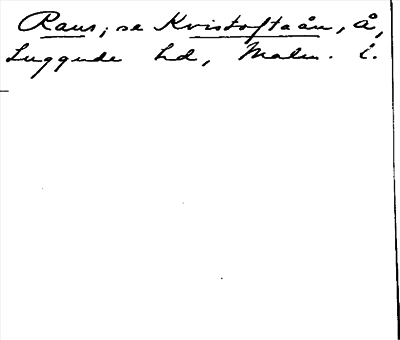 Raus; se Kvistoftaån, å,
Luggude hd, Malm. l.